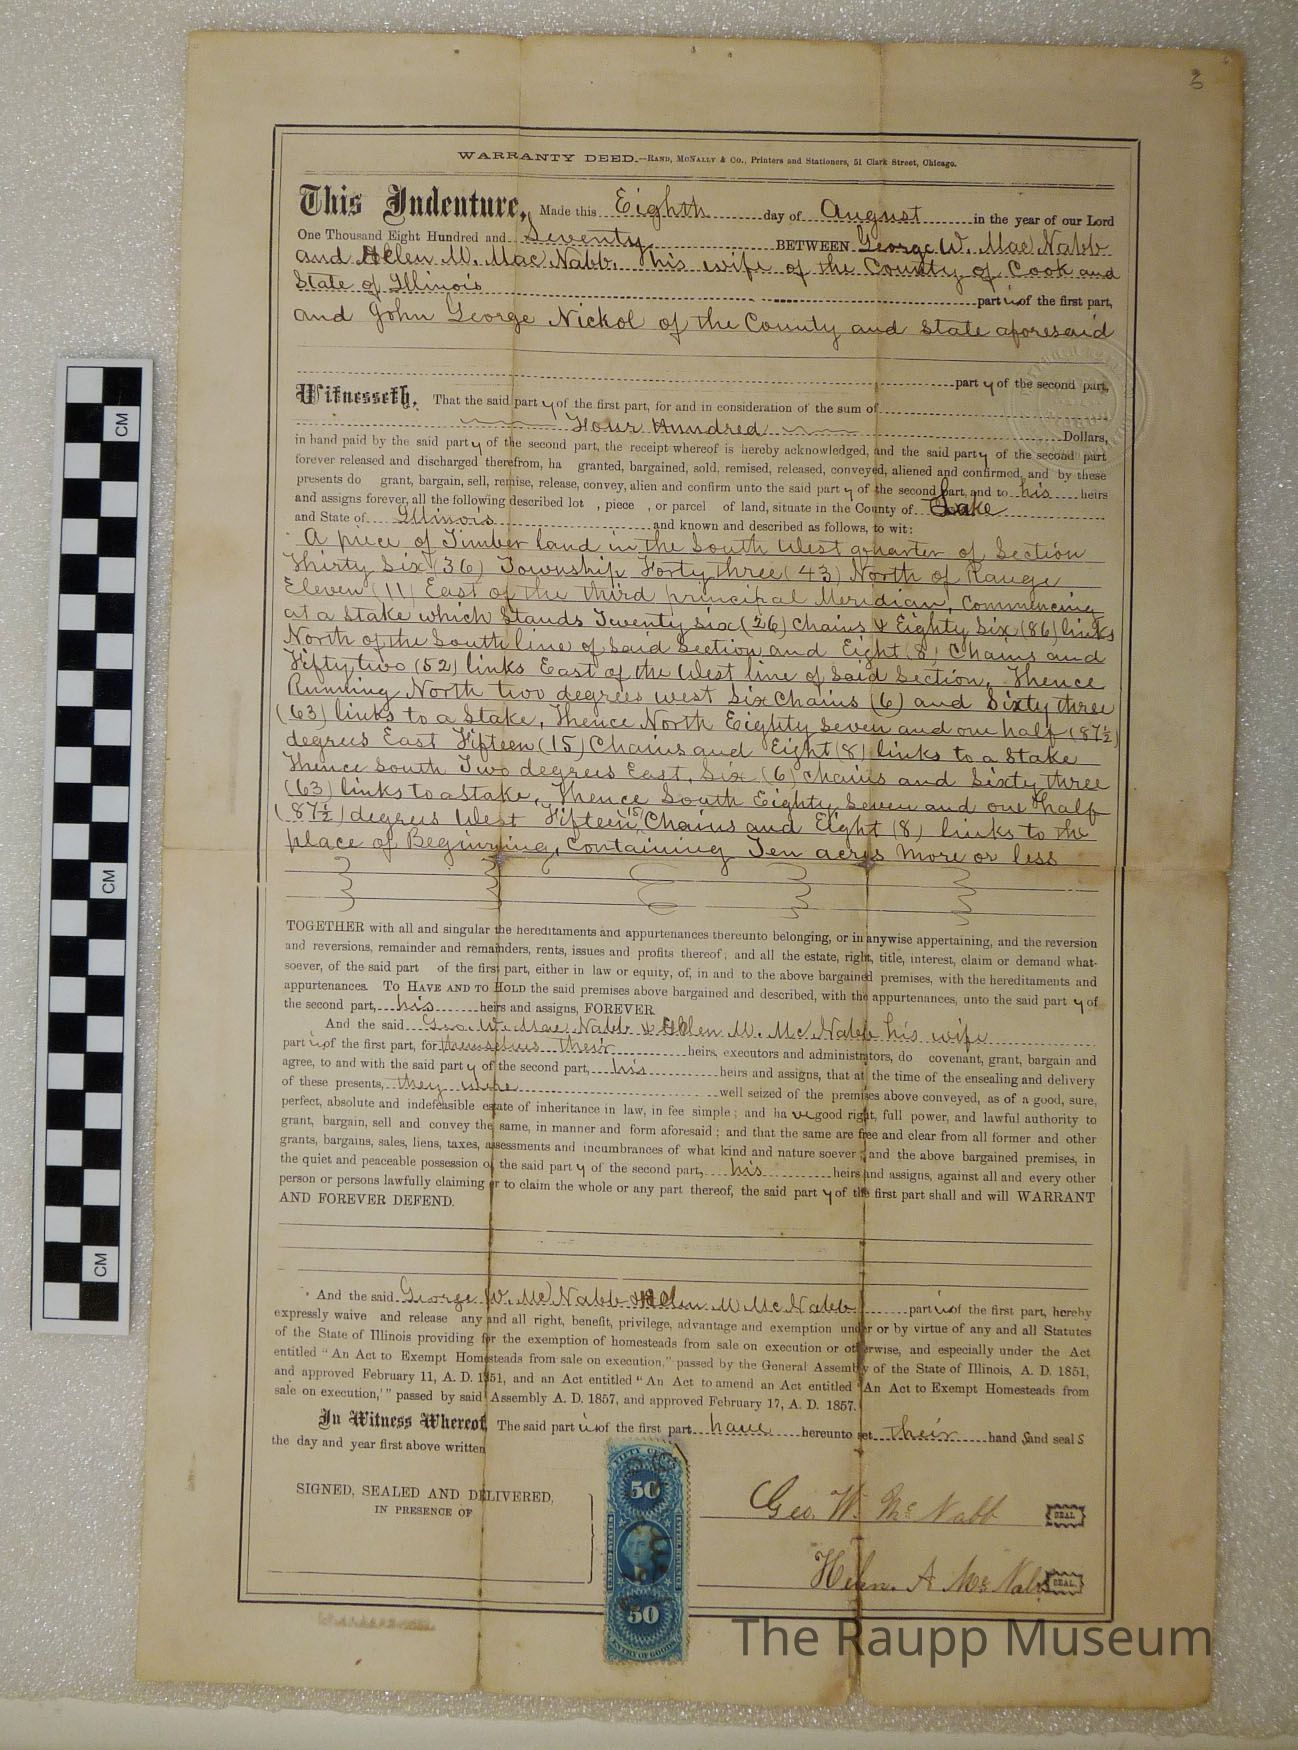 WARRANTY DEED.—RAND, MCNALLY & CO., Printers and Stationers, 51 Clark Street, Chicago.
This Indenture, Made this Eighth day of August in the year of our Lord
One Thousand Eight Hundred and Seventy BETWEEN George W. Mac Nabb
and Helen M. Mac Nabb, his wife of the County of Cook and
State of Illinois part is of the first part,
and John George Nickol of the County and State aforesaid
part y of the second part,
Witnesseth, That the said part y of the first part, for and in consideration of the sum of
Four Hundred Dollars,
in hand paid by the said part y of the second part, the receipt whereof is hereby acknowledged, and the said part y of the second part
forever released and discharged therefrom, ha granted, bargained, sold, remised, released, conveyed, aliened and confirmed, and by these
presents do grant, bargain, sell, remise, release, convey, alien and confirm unto the said part y of the second part, and to his heirs
and assigns forever, all the following described lot , piece , or parcel of land, situate in the County of Lake
and State of Illinois and known and described as follows, to wit:
A piece of Timber land in the South West quarter of Section
Thirty Six (36) Township Forty three (43) North of Range
Eleven (11) East of the third principal Meridian, Commencing
at a Stake which Stands Twenty six (26) chains & Eighty Six (86) links
North of the South line of Said Section and Eight (8) Chains and
Fifty two (52) links East of the West line of Said Section, Thence
Running North two degrees west Six Chains (6) and Sixty three
(63) links to a Stake, Thence North Eighty Seven and one half (87½)
degrees East Fifteen (15) Chains and Eight (8) links to a Stake
Thence South Two degrees East, Six (6) chains and Sixty three
(63) links to a stake, Thence South Eighty Seven and one half
(87½) degrees West Fifteen (15) Chains and Eight (8) links to the
place of Beginning, Containing Ten acres More or less
TOGETHER with all and singular the hereditaments and appurtenances thereunto belonging, or in anywise appertaining, and the reversion
and reversions, remainder and remainders, rents, issues and profits thereof; and all the estate, right, title, interest, claim or demand what-
soever, of the said part of the first part, either in law or equity, of, in and to the above bargained premises, with the hereditaments and
appurtenances. TO HAVE AND TO HOLD the said premises above bargained and described, with the appurtenances, unto the said part y of
the second part, his heirs and assigns, FOREVER.
And the said Geo. W. Mac Nabb & Helen M. Mc Nabb his wife
part is of the first part, for themselves their heirs, executors and administrators, do covenant, grant, bargain and
agree, to and with the said part y of the second part, his heirs and assigns, that at the time of the ensealing and delivery
of these presents, they were well seized of the premises above conveyed, as of a good, sure,
perfect, absolute and indefeasible estate of inheritance in law, in fee simple; and ha ve good right, full power, and lawful authority to
grant, bargain, sell and convey the same, in manner and form aforesaid; and that the same are free and clear from all former and other
grants, bargains, sales, liens, taxes, assessments and incumbrances of what kind and nature soever; and the above bargained premises, in
the quiet and peaceable possession of the said part y of the second part, his heirs and assigns, against all and every other
person or persons lawfully claiming or to claim the whole or any part thereof, the said part y of the first part shall and will WARRANT
AND FOREVER DEFEND.
And the said George W. Mc Nabb & Helen M Mc Nabb part is of the first part, hereby
expressly waive and release any and all right, benefit, privilege, advantage and exemption under or by virtue of any and all Statutes
of the State of Illinois providing for the exemption of homesteads from sale on execution or otherwise, and especially under the Act
entitled "An Act to Exempt Homesteads from sale on execution," passed by the General Assembly of the State of Illinois, A. D. 1851,
and approved February 11, A. D. 1851, and an Act entitled "An Act to amend an Act entitled 'An Act to Exempt Homesteads from
sale on execution,'" passed by said Assembly A. D. 1857, and approved February 17, A. D. 1857.
In Witness Whereof, The said part is of the first part have hereunto set their hand s and seal s
the day and year first above written
SIGNED, SEALED AND DELIVERED,
IN PRESENCE OF
Geo. W. Mc Nabb SEAL.
Helen. A Mc Nabb SEAL.
FIFTY CENTS
50
50
CM
CM
CM
The Raupp Museum